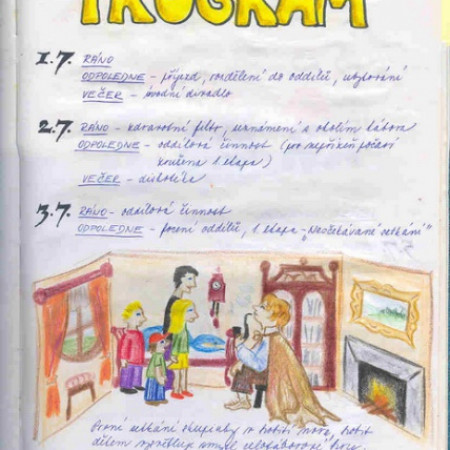 PROGRAM
1.7. RÁNO
ODPOLEDNE - příjezd, rozdělení do oddílů, ubytování
VEČER - úvodní divadlo
2.7. RÁNO - zdravotní filtr, seznámení s okolím tábora
ODPOLEDNE - oddílová činnost (pro nepřízeň počasí
zrušena 1. etapa)
VEČER - diskotéka
3.7. RÁNO - oddílová činnost
ODPOLEDNE - focení oddílů, 1. etapa - "Neočekávané setkání"
První setkání skupinky v hobití noře, hobit
dětem vysvětluje smysl celotáborové hry.